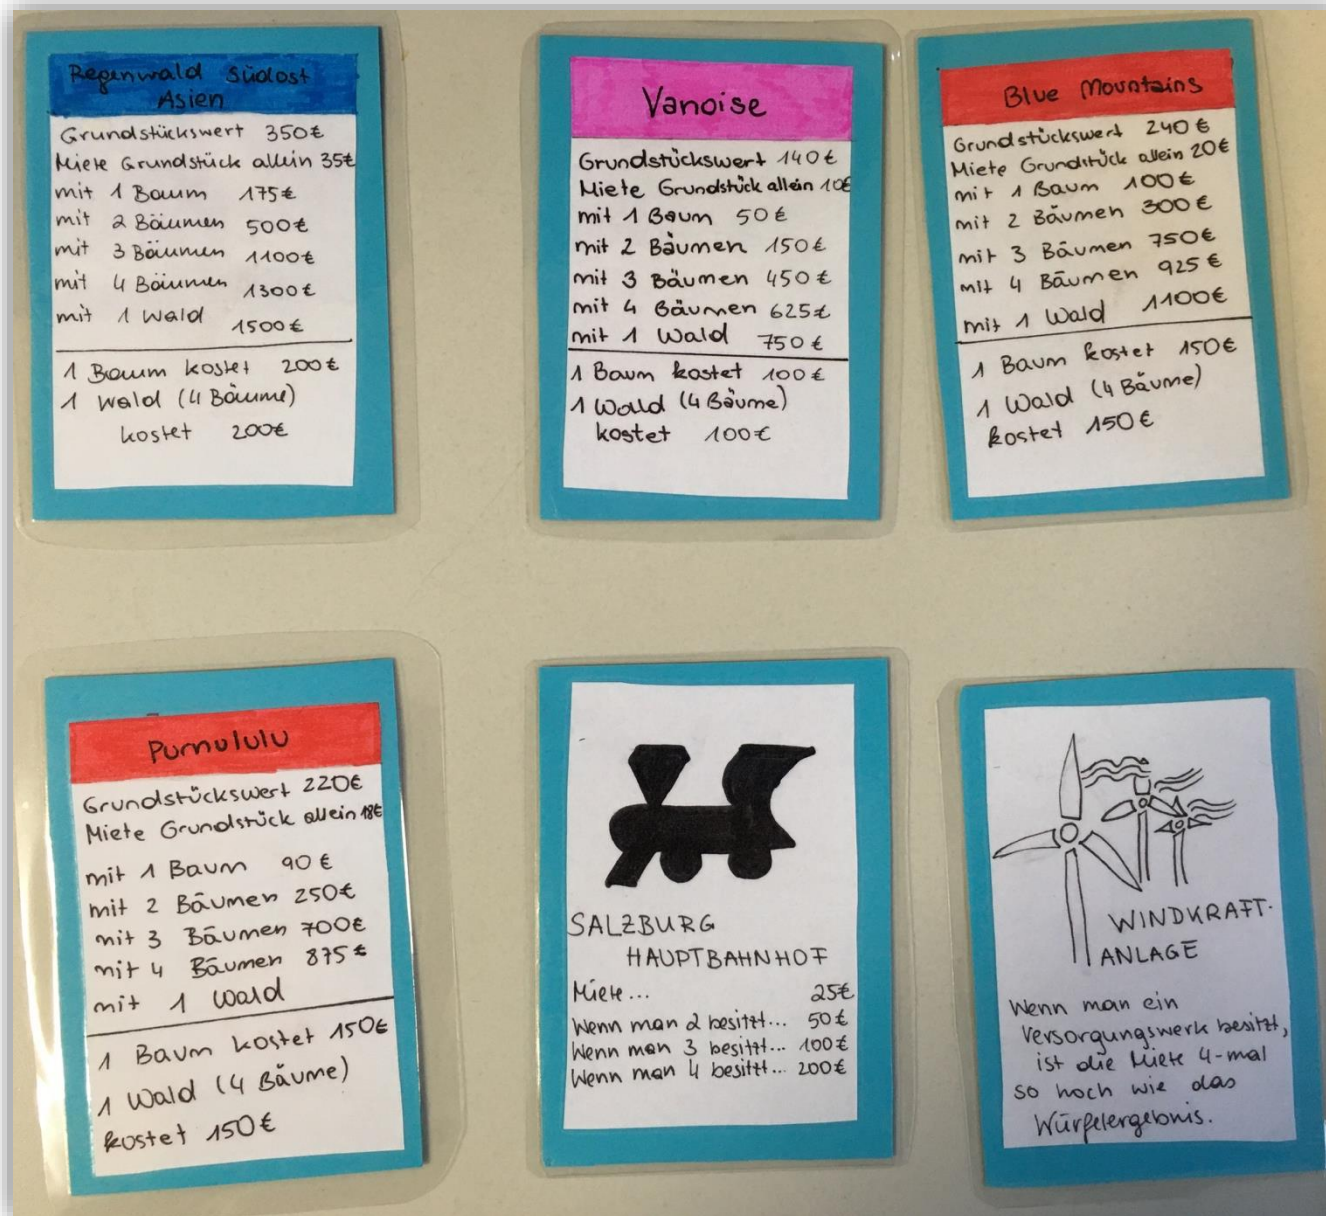 Regenwald Südost
Asien
Grundstückswert 350€
Miete Grundstück allein 35€
mit 1 Baum 175€
mit 2 Bäumen 500€
mit 3 Bäumen 1100€
mit 4 Bäumen 1300€
mit 1 Wald 1500€
1 Baum kostet 200€
1 Wald (4 Bäume)
kostet 200€
Vanoise
Grundstückswert 140€
Miete Grundstück allein 10€
mit 1 Baum 50€
mit 2 Bäumen 150€
mit 3 Bäumen 450€
mit 4 Bäumen 625€
mit 1 Wald 750€
1 Baum kostet 100€
1 Wald (4 Bäume)
kostet 100€
Blue Mountains
Grundstückswert 240€
Miete Grundstück allein 20€
mit 1 Baum 100€
mit 2 Bäumen 300€
mit 3 Bäumen 750€
mit 4 Bäumen 925€
mit 1 Wald 1100€
1 Baum kostet 150€
1 Wald (4 Bäume)
kostet 150€
Purnululu
Grundstückswert 220€
Miete Grundstück allein 18€
mit 1 Baum 90€
mit 2 Bäumen 250€
mit 3 Bäumen 700€
mit 4 Bäumen 875€
mit 1 Wald
1 Baum kostet 150€
1 Wald (4 Bäume)
kostet 150€
SALZBURG
HAUPTBAHNHOF
Miete... 25€
Wenn man 2 besitzt... 50€
Wenn man 3 besitzt... 100€
Wenn man 4 besitzt... 200€
WINDKRAFT-
ANLAGE
Wenn man ein
Versorgungswerk besitzt,
ist die Miete 4-mal
so hoch wie das
Würfelergebnis.